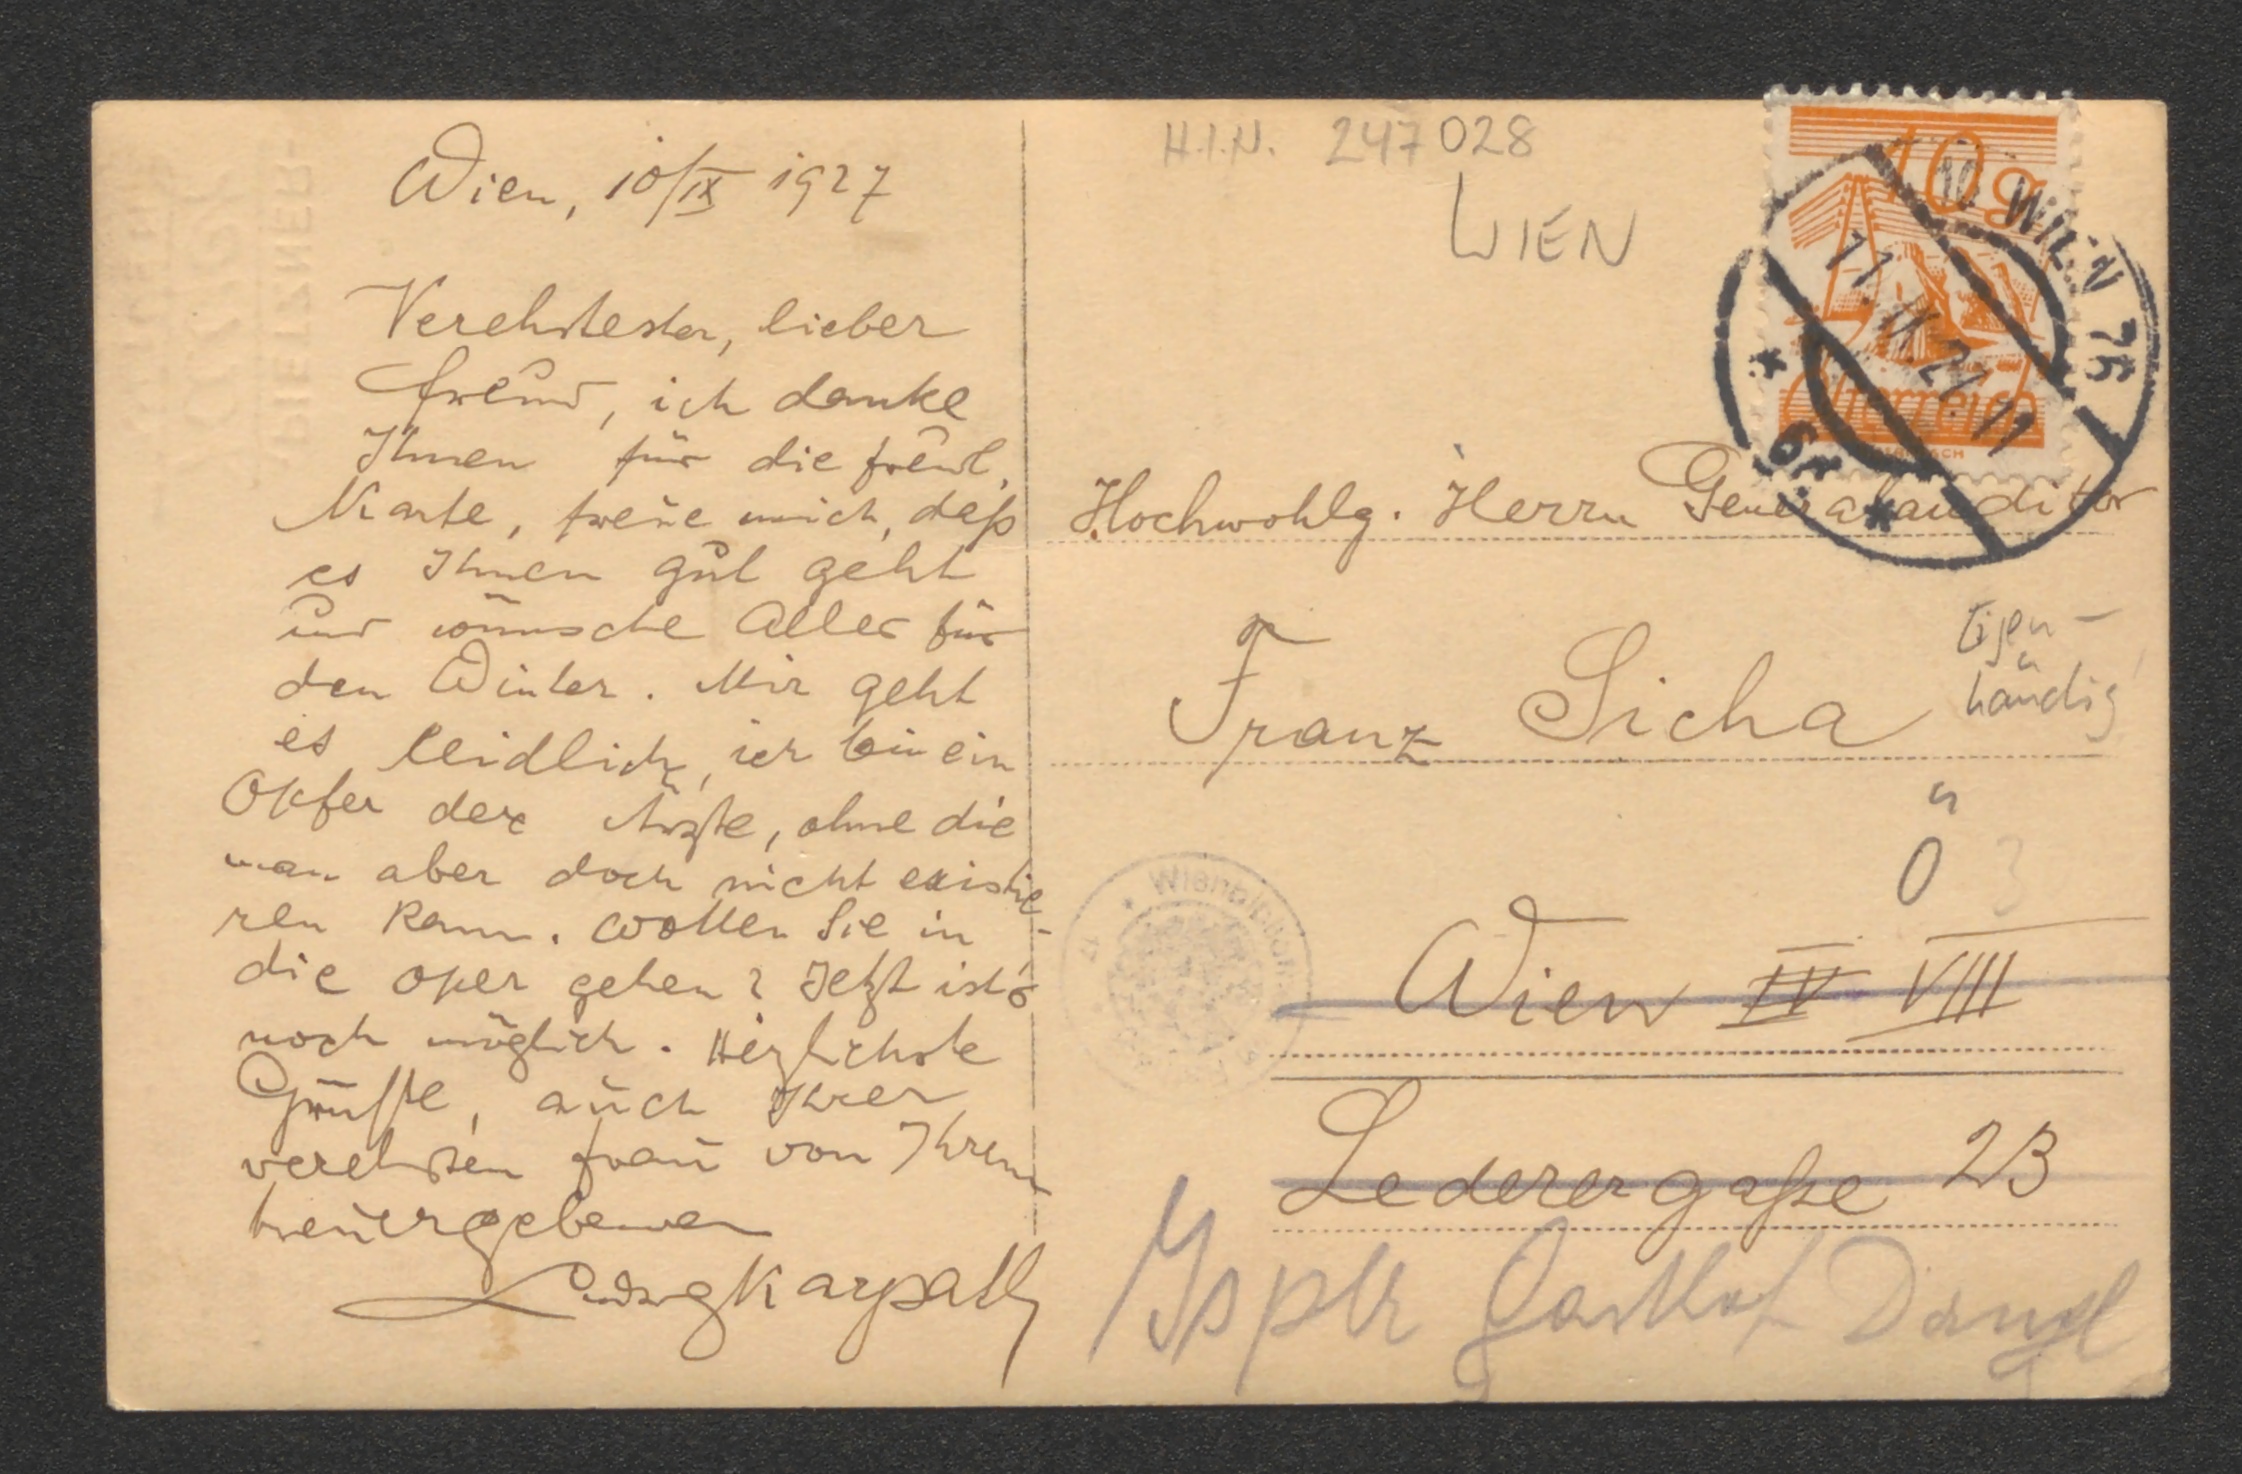 Wien, 10/IX 1927
Verehrtester, lieber
Freund, ich danke
Ihnen für die freundl.
Karte, freue mich, daß
es Ihnen gut geht
und wünsche Alles für
den Winter. Mir geht
es leidlich, ich bin ein
Opfer der Ärzte, ohne die
man aber doch nicht existie-
ren kann. Wollen Sie in
die Oper gehen? Jetzt ist's
noch möglich. Herzlichste
Grüsse, auch Ihrer
verehrten Frau von Ihrem
treuergebenen
Ludwig Karpath
H.I.N. 247028
WIEN
10 g
Österreich
WIEN 76
Hochwohlg. Herrn Generalauditor
Franz Sicha
Eigen-
händig
Ö 3
Wien IV VIII
Lederergaße 23
Gasthof
PIETZNER